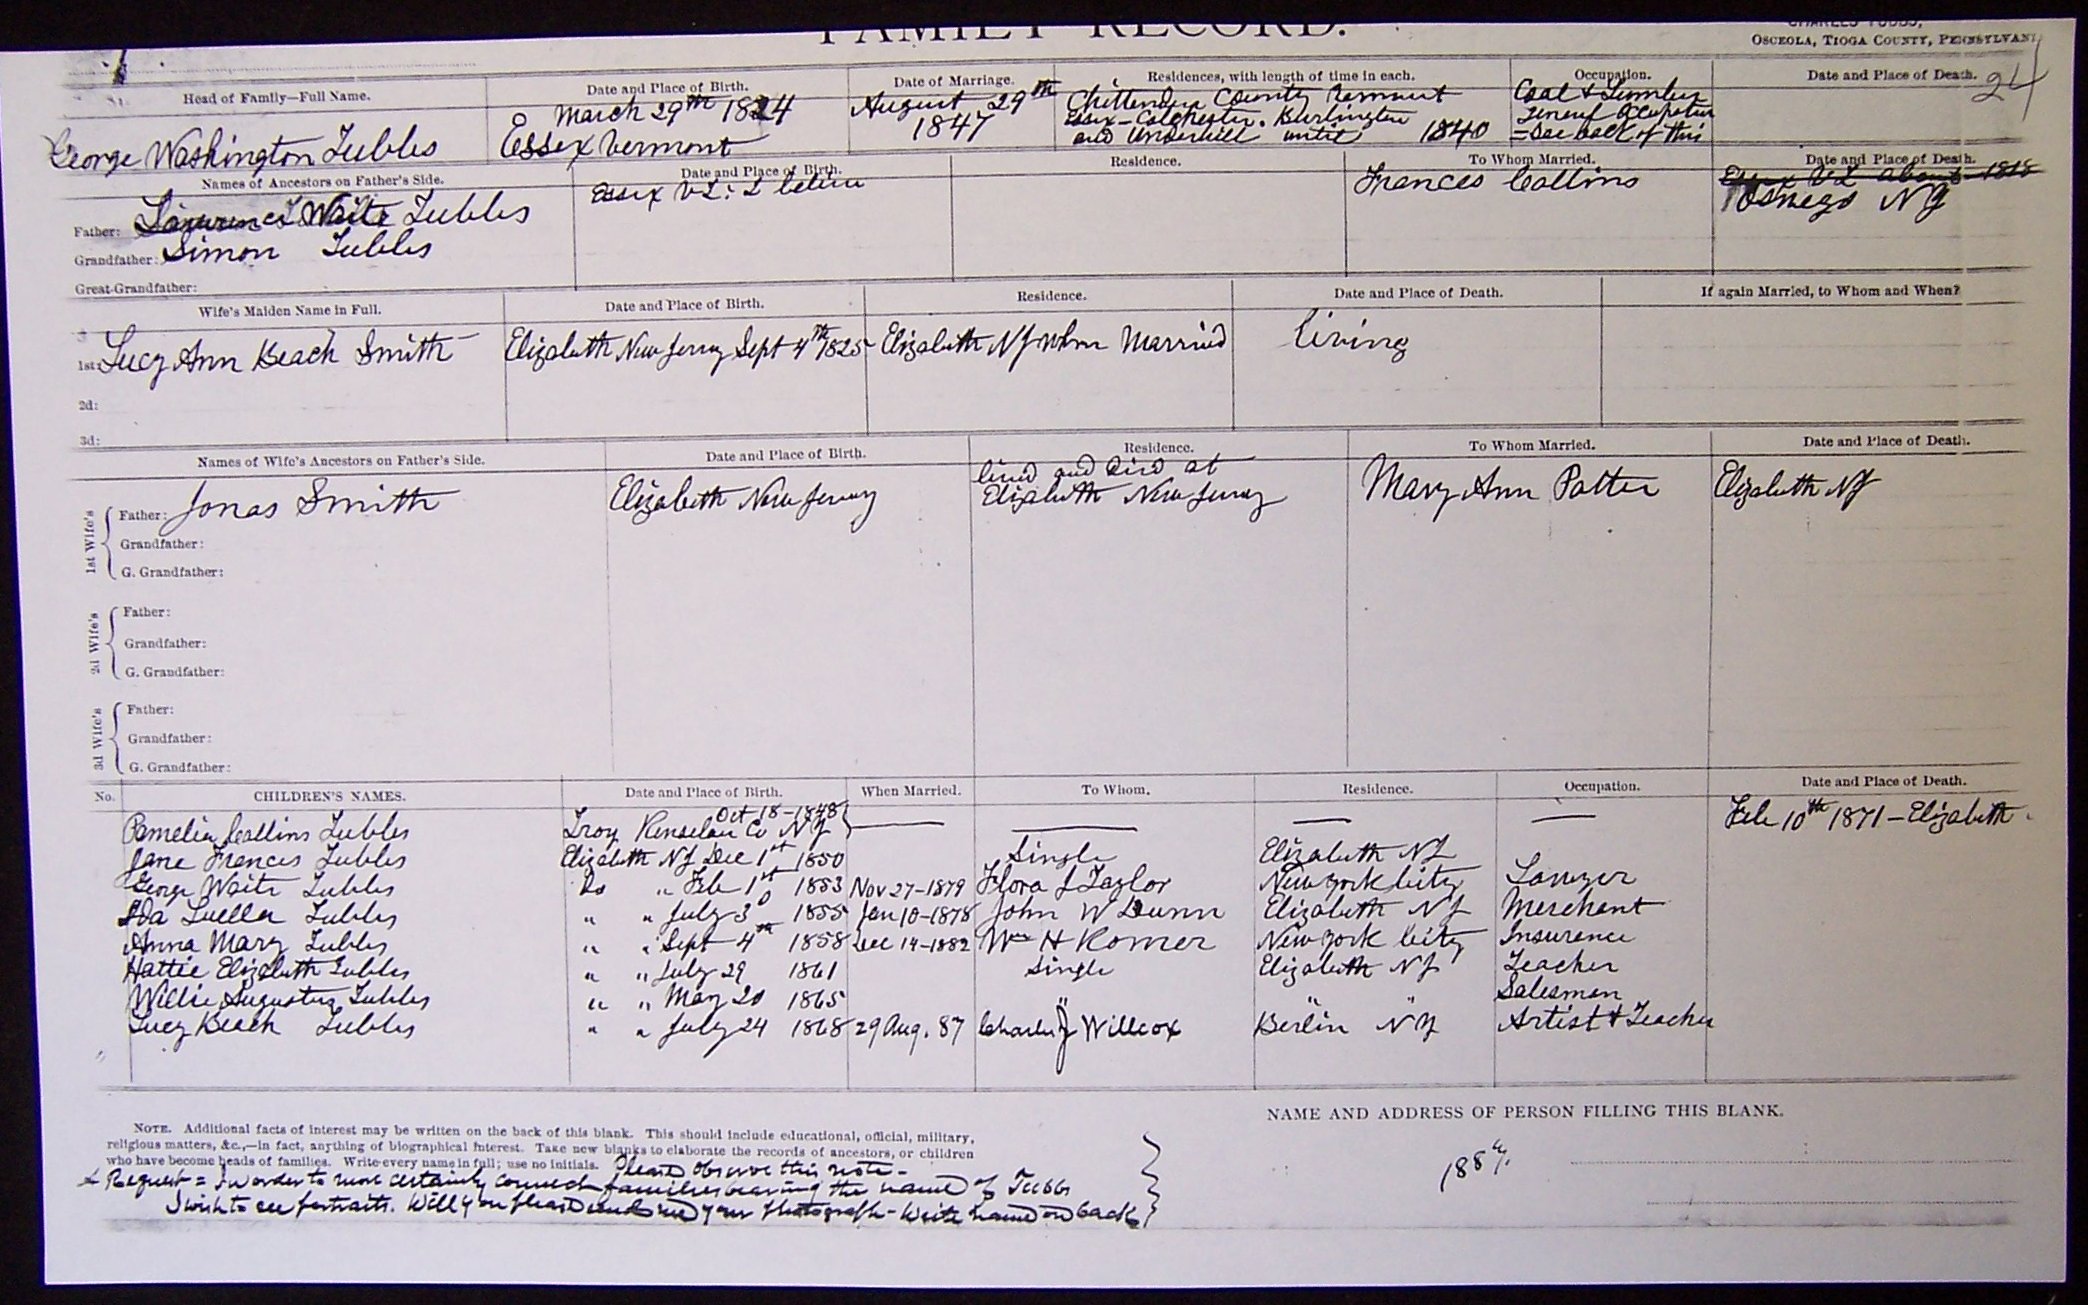 FAMILY RECORD.
CHARLES TUBBS,
OSCEOLA, TIOGA COUNTY, PENNSYLVANI
24
Head of Family—Full Name. Date and Place of Birth. Date of Marriage. Residences, with length of time in each. Occupation. Date and Place of Death.
George Washington Tubbs March 29th 1824 Essex Vermont August 29th 1847 Chittenden County Vermont Essex - Colchester. Burlington and Underhill until 1840 Coal & Lumber General Occupation = See back of this
Names of Ancestors on Father's Side. Date and Place of Birth. Residence. To Whom Married. Date and Place of Death.
Father: Waite Tubbs Essex Vt. Frances Collins Essex Vt about 1818 Oswego NY
Grandfather: Simon Tubbs
Great-Grandfather:
Wife's Maiden Name in Full. Date and Place of Birth. Residence. Date and Place of Death. If again Married, to Whom and When?
1st: Lucy Ann Beach Smith Elizabeth New Jersey Sept 4th 1825 Elizabeth NJ when Married living
2d:
3d:
Names of Wife's Ancestors on Father's Side. Date and Place of Birth. Residence. To Whom Married. Date and Place of Death.
1st Wife's
Father: Jonas Smith Elizabeth New Jersey lived and died at Elizabeth New Jersey Mary Ann Potter Elizabeth NJ
Grandfather:
G. Grandfather:
2d Wife's
Father:
Grandfather:
G. Grandfather:
3d Wife's
Father:
Grandfather:
G. Grandfather:
No. CHILDREN'S NAMES. Date and Place of Birth. When Married. To Whom. Residence. Occupation. Date and Place of Death.
Pamelia Collins Tubbs Troy Renselaer Co NY Oct 18-1848 Feb 10th 1871 - Elizabeth
Jane Frances Tubbs Elizabeth NJ Dec 1st 1850 Single Elizabeth NJ
George Waite Tubbs Do " Feb 1st 1853 Nov 27-1879 Flora J Taylor New York City Lawyer
Ida Luella Tubbs " " July 3d 1855 Jan 10-1878 John W Dunn Elizabeth NJ Merchant
Anna Mary Tubbs " " Sept 4th 1858 Dec 14-1882 Wm H Romer New York City Insurance
Hattie Elizabeth Tubbs " " July 29 1861 Single Elizabeth NJ Teacher
Willie Augustus Tubbs " " May 20 1865 " " " Salesman
Lucy Beach Tubbs " " July 24 1868 29 Aug. 87 Charles J Willcox Berlin NY Artist & Teacher
NAME AND ADDRESS OF PERSON FILLING THIS BLANK.
NOTE. Additional facts of interest may be written on the back of this blank. This should include educational, official, military,
religious matters, &c.,—in fact, anything of biographical interest. Take new blanks to elaborate the records of ancestors, or children
who have become heads of families. Write every name in full; use no initials. Please observe this note -
Request = In order to more certainly connect families bearing the name of Tubbs
I wish to see portraits. Will you please send me your photograph - Write name on back